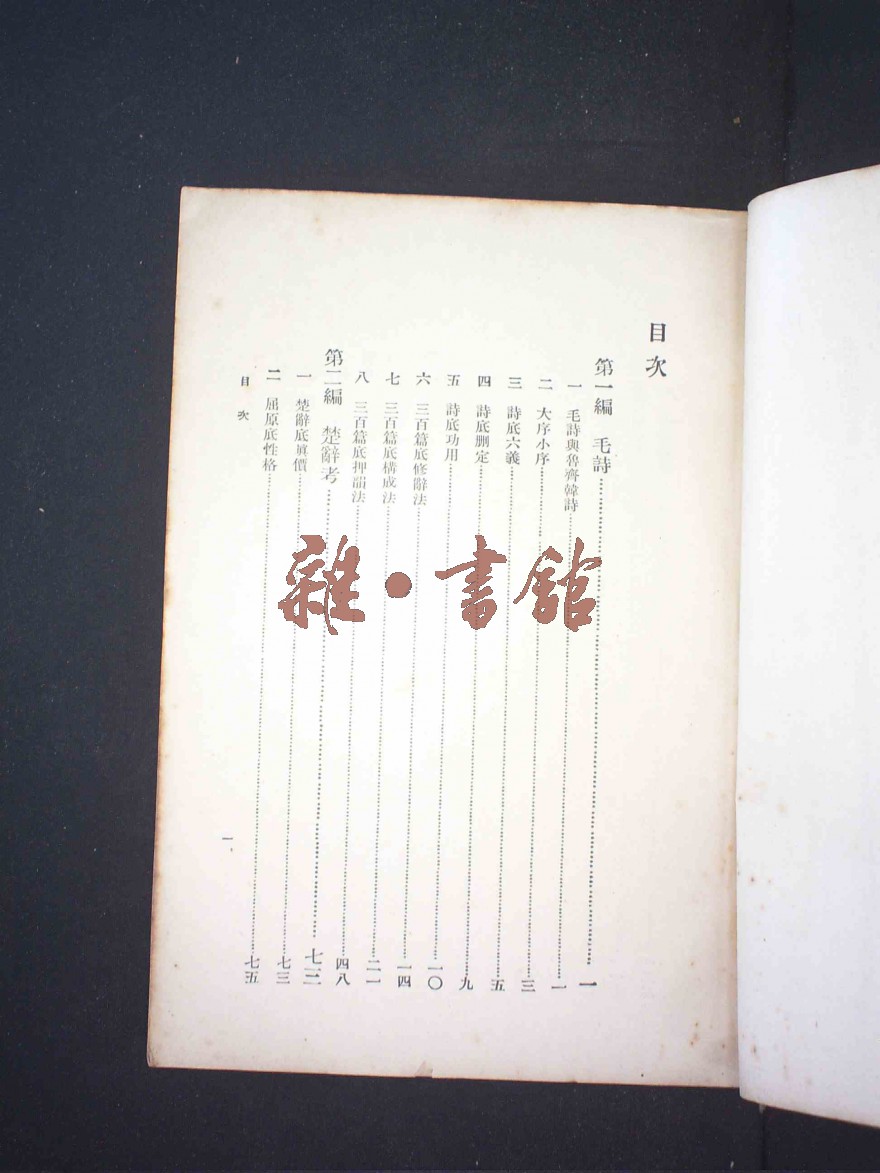 目次
第一編 毛詩……一
一 毛詩與魯齊韓詩……一
二 大序小序……三
三 詩底六義……五
四 詩底刪定……九
五 詩底功用……一〇
六 三百篇底修辭法……一四
七 三百篇底構成法……二一
八 三百篇底押韻法……四八
第二編 楚辭考……七二
一 楚辭底眞價……七三
二 屈原底性格……七五
目次
一
雜·書館